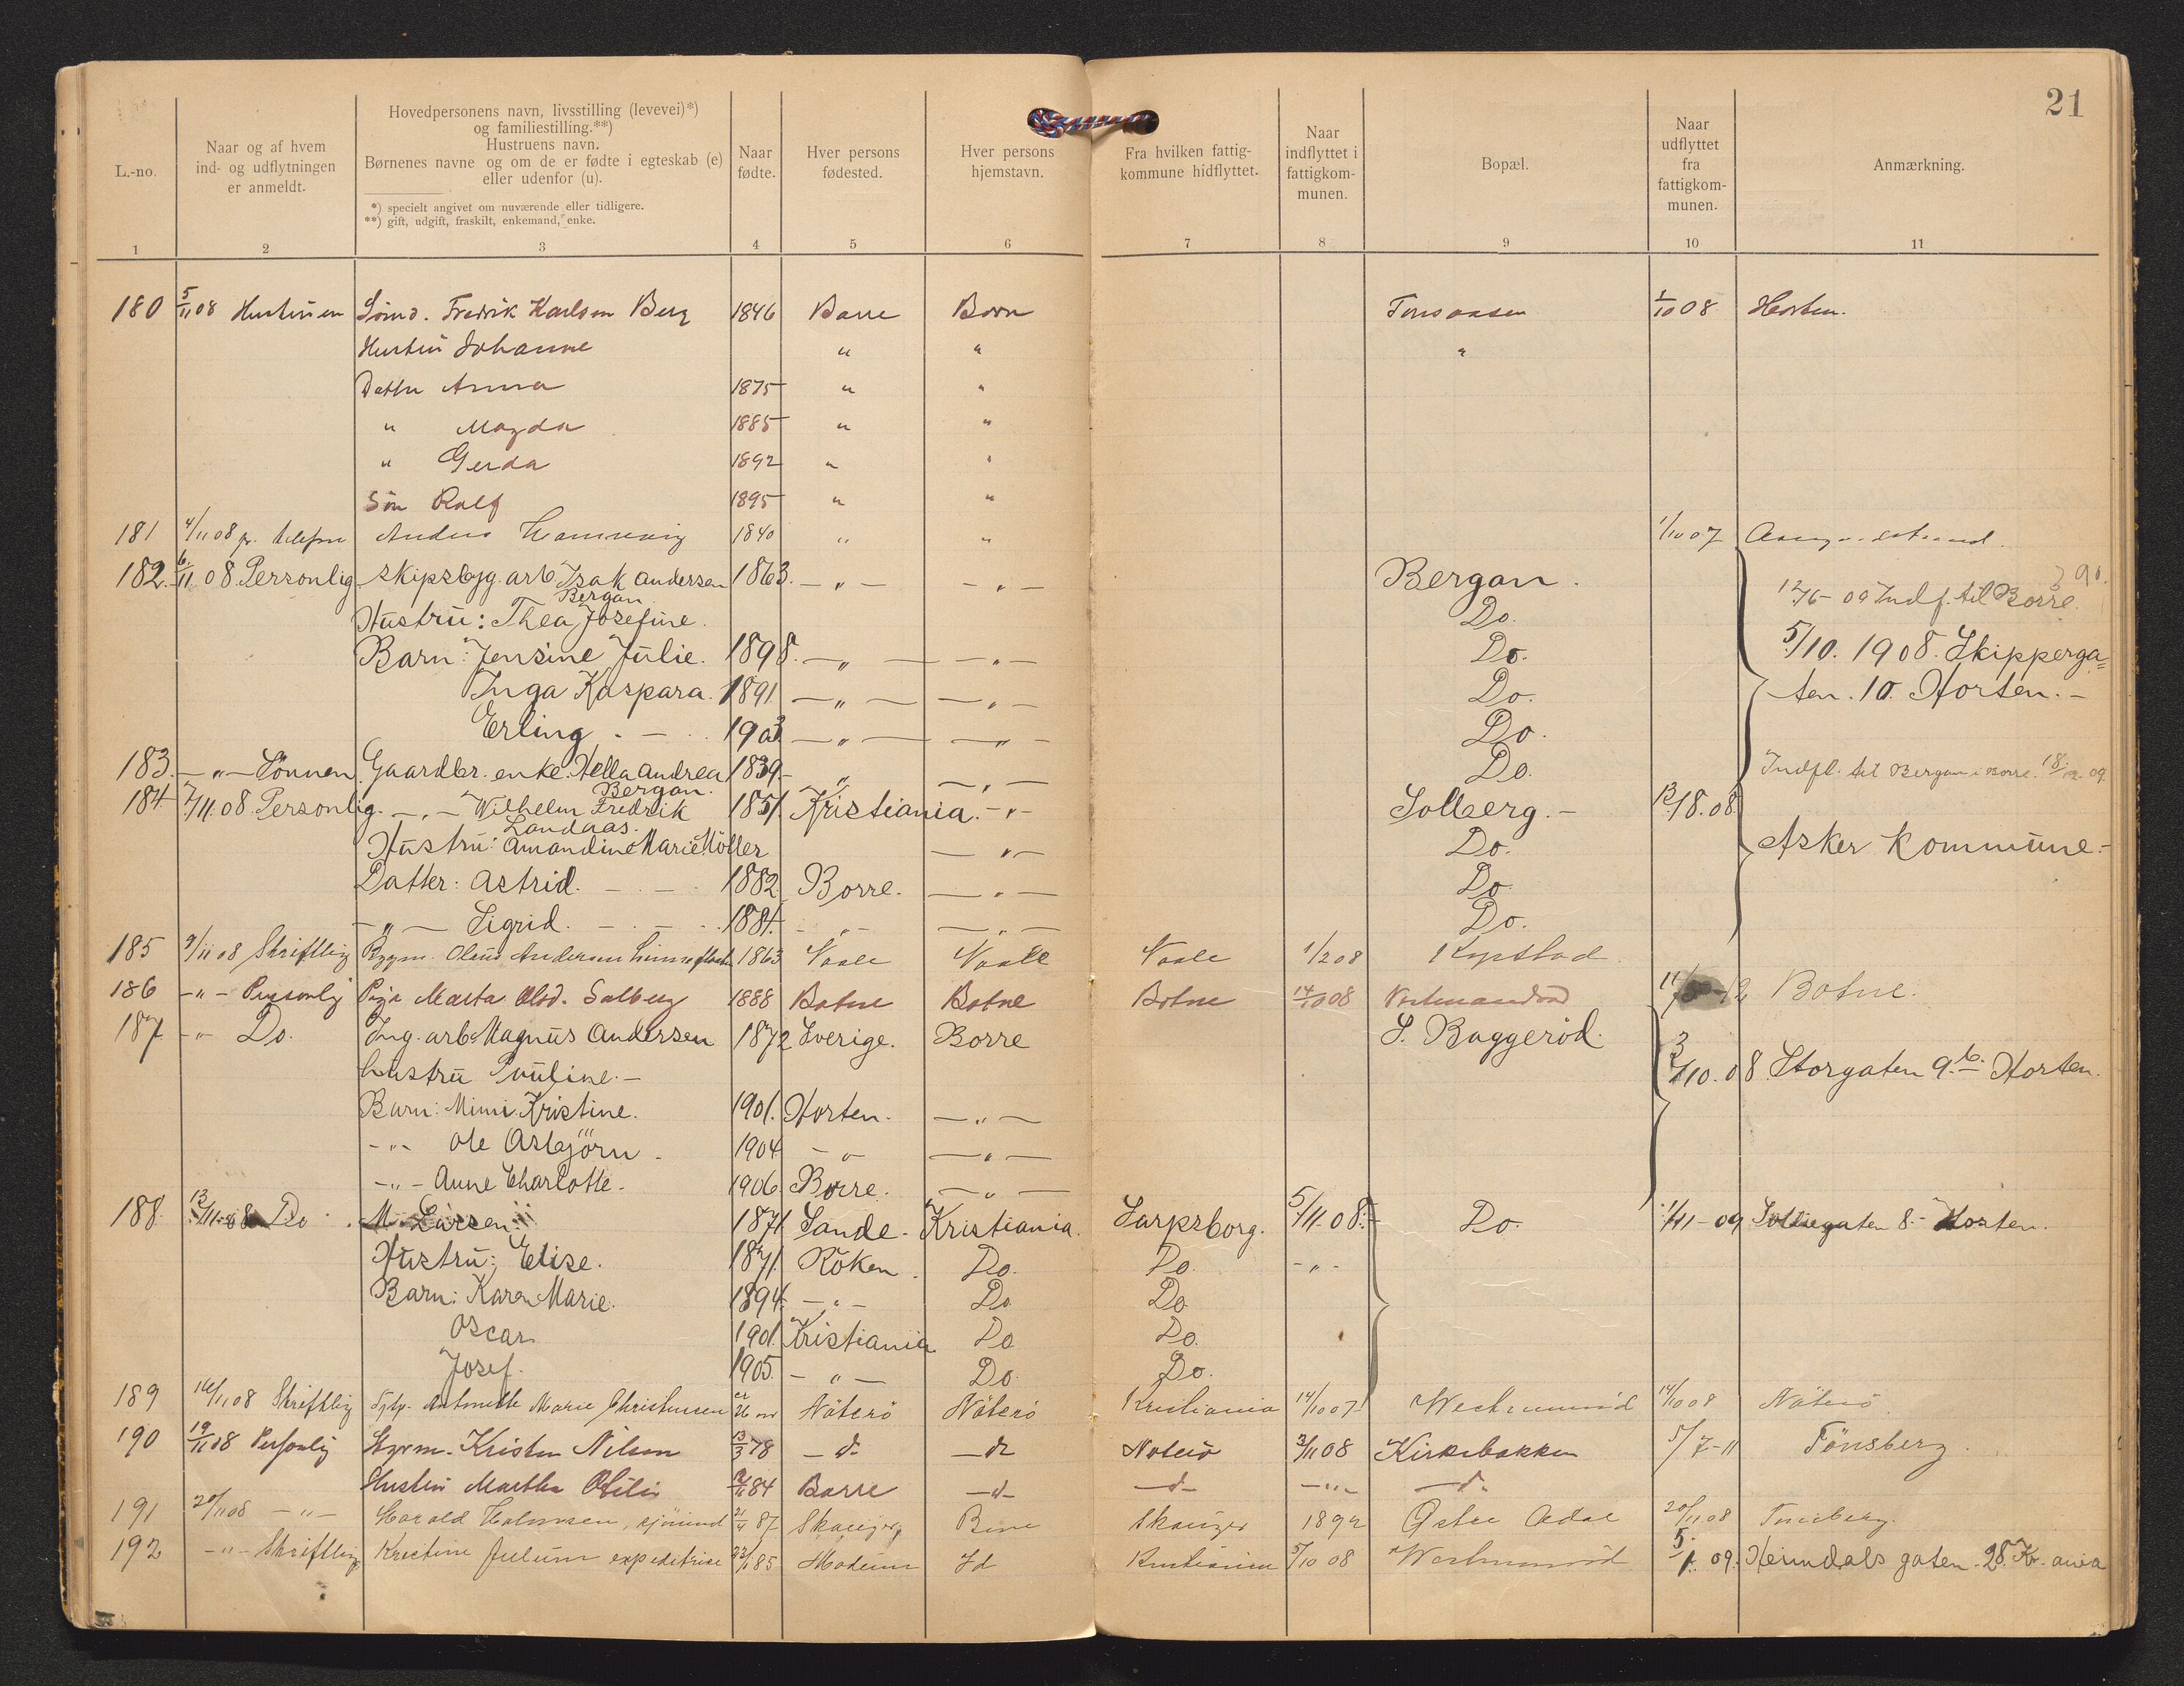 21
L.-no.
Naar og af hvem
ind- og udflytningen
er anmeldt.
Hovedpersonens navn, livsstilling (levevei)*)
og familiestilling.**)
Hustruens navn.
Børnenes navne og om de er fødte i egteskab (e)
eller udenfor (u).
*) specielt angivet om nuværende eller tidligere.
**) gift, udgift, fraskilt, enkemand, enke.
Naar
fødte.
Hver persons
fødested.
Hver persons
hjemstavn.
Fra hvilken fattig-
kommune hidflyttet.
Naar
indflyttet i
fattigkom-
munen.
Bopæl.
Naar
udflyttet
fra
fattigkom-
munen.
Anmærkning.
1 2 3 4 5 6 7 8 9 10 11
180 5/11 08 Hustruen Sömd. Fredrik Karlsen Berg 1846 Borre Borre 1/10 08 Horten.
Hustru Johanne " " "
Datter Anna 1875 " "
" Magda 1885 " "
" Gerda 1892 " "
Sön Rolf 1895 " "
181 4/11 08 pr. telefon Anders 1840 " " 1/10 07
182. 6/11 08. Personlig. Skipsbyg. arb. Isak Andersen 1863. - " - - " - Bergan.
Bergan 12/5 - 09 Indf. til Borre.
Hustru: Thea Josefine. Do.
Barn: Jensine Julie. 1898. - " - - " - Do. 5/10. 1908. Skipperga=
Inga Kaspara. 1891. - " - - " - Do. ten. 10. Horten. -
Erling 1903 - " - - " - Do.
183. - " - Sönnen. Gaardbr. enke. Hella Andrea 1839. " - " - Do. Indfl. til Bergan i Borre. 18/12. 09
Bergan.
184 7/11. 08. Personlig. - " - Wilhelm Fredrik 1851. Kristiania. - " - Solberg. - 13/8. 08
Landaas.
Hustru: Amandine Marie Möller - " - Do. Asker Kommune. -
Datter: Astrid. 1882 Borre. - " - Do.
- " - Sigrid. 1884. - " - - " - Do.
185 9/11 08 Skriftlig Olaus Andersen 1863 Vaale Vaale Vaale 1/2 08 Kopstad
186 - " - Personlig Pige Marta Olsd. Solberg 1888 Botne Botne Botne 14/10 08 Botne.
187 - " Do. Ing. arb. Magnus Andersen 1872 Sverige. Borre S. Baggeröd.
hustru Pauline. - 3/10. 08 Storgaten 9. b. Horten.
Barn: Mimi Kristine. 1901. Horten. - " -
- " - Ole Asbjörn 1904 - " - - " -
- " - Anne Charlotte. 1906 Borre. - " -
188. 13/11. 08 Do. M. Larsen 1871. Sande - Kristiania. Sarpsborg. 5/11. 08. Do. 1/11 - 09 8. - Horten.
Hustru: Elise. 1871. Röken. Do. Do. - " -
Barn: Karen Marie. 1894. - " - Do. Do.
Oscar 1901. Kristiania Do Do.
Josef. 1905. - " - Do. Do.
189 14/11 08 Skriftlig Antonette Marie Christensen Nöterö Nöterö Kristiania 14/10 07 14/10 08 Nöterö
190 19/11 08 Personlig Styrm. Kristen Nilsen 13/3 78 - d - - d - Noterö 3/11 08 Kirkebakken 5/7 - 11 Tönsberg.
Hustru Martha Otilie 84 Borre - d - - d - - " - - d -
191 20/11 08 - " - Harald sjömand 21/4 87 Skauger 1892 20/11 08
192 - " - Skriftlig Kristine Julum expeditrise 85 Modum Id Kristiania 5/10 08 5/1. 09. Heimdals gaten. 28. Kr. ania